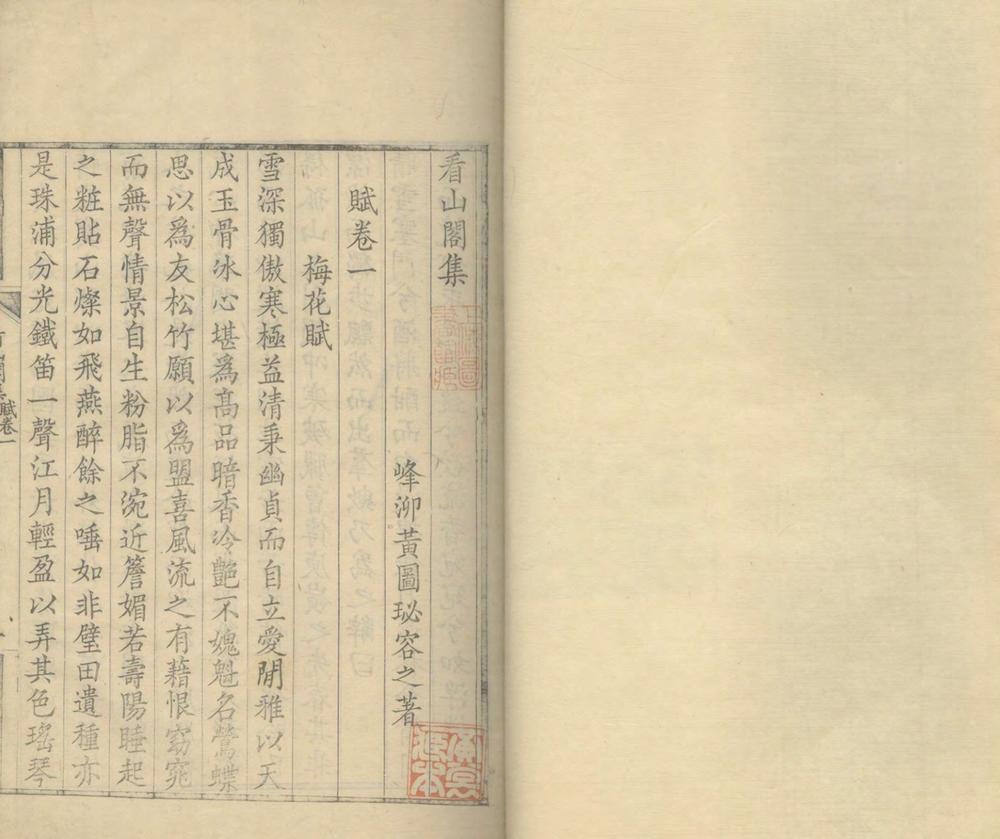 看山閣集
峰泖黃圖珌容之著
賦卷一
梅花賦
雪深獨傲寒極益清秉幽貞而自立愛閒雅以天
成玉骨冰心堪為高品暗香冷艷不媿魁名鶯蝶
思以為友松竹願以為盟喜風流之有藉恨窈窕
而無聲情景自生粉脂不涴近簷媚若壽陽睡起
之粧貼石燦如飛燕醉餘之唾如非璧田遺種亦
是珠浦分光鐵笛一聲江月輕盈以弄其色瑤琴
賦卷一